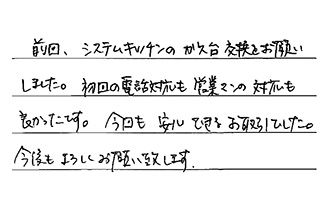 前回、システムキッチンのガス台交換をお願い
しました。初回の電話対応も営業マンの対応も
良かったです。今回も安心できるお取引でした。
今後もよろしくお願い致します.